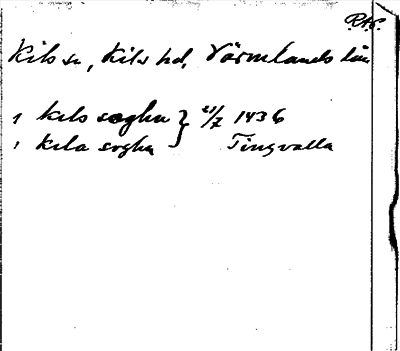 RAP.
Kils sn, Kils hd, Värmlands län
i kils soghn } 21/7 1436
i kila soghn Tingvalla